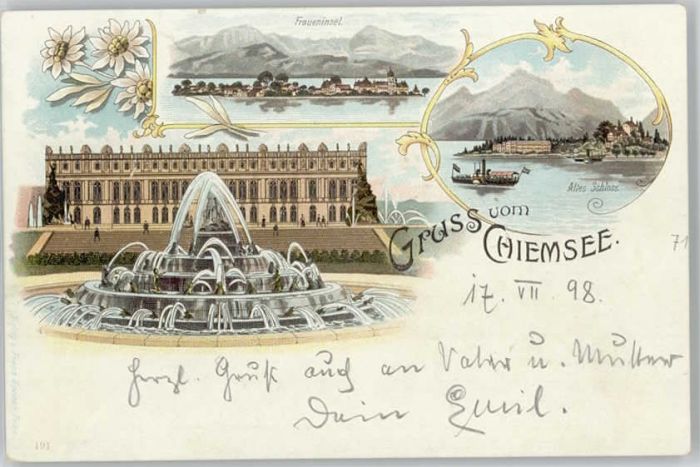 Fraueninsel.
Altes Schloss
Gruss vom
Chiemsee.
71
17. VII. 98.
Herzl. Gruß auch an Vater u. Mutter
Dein Emil.
191